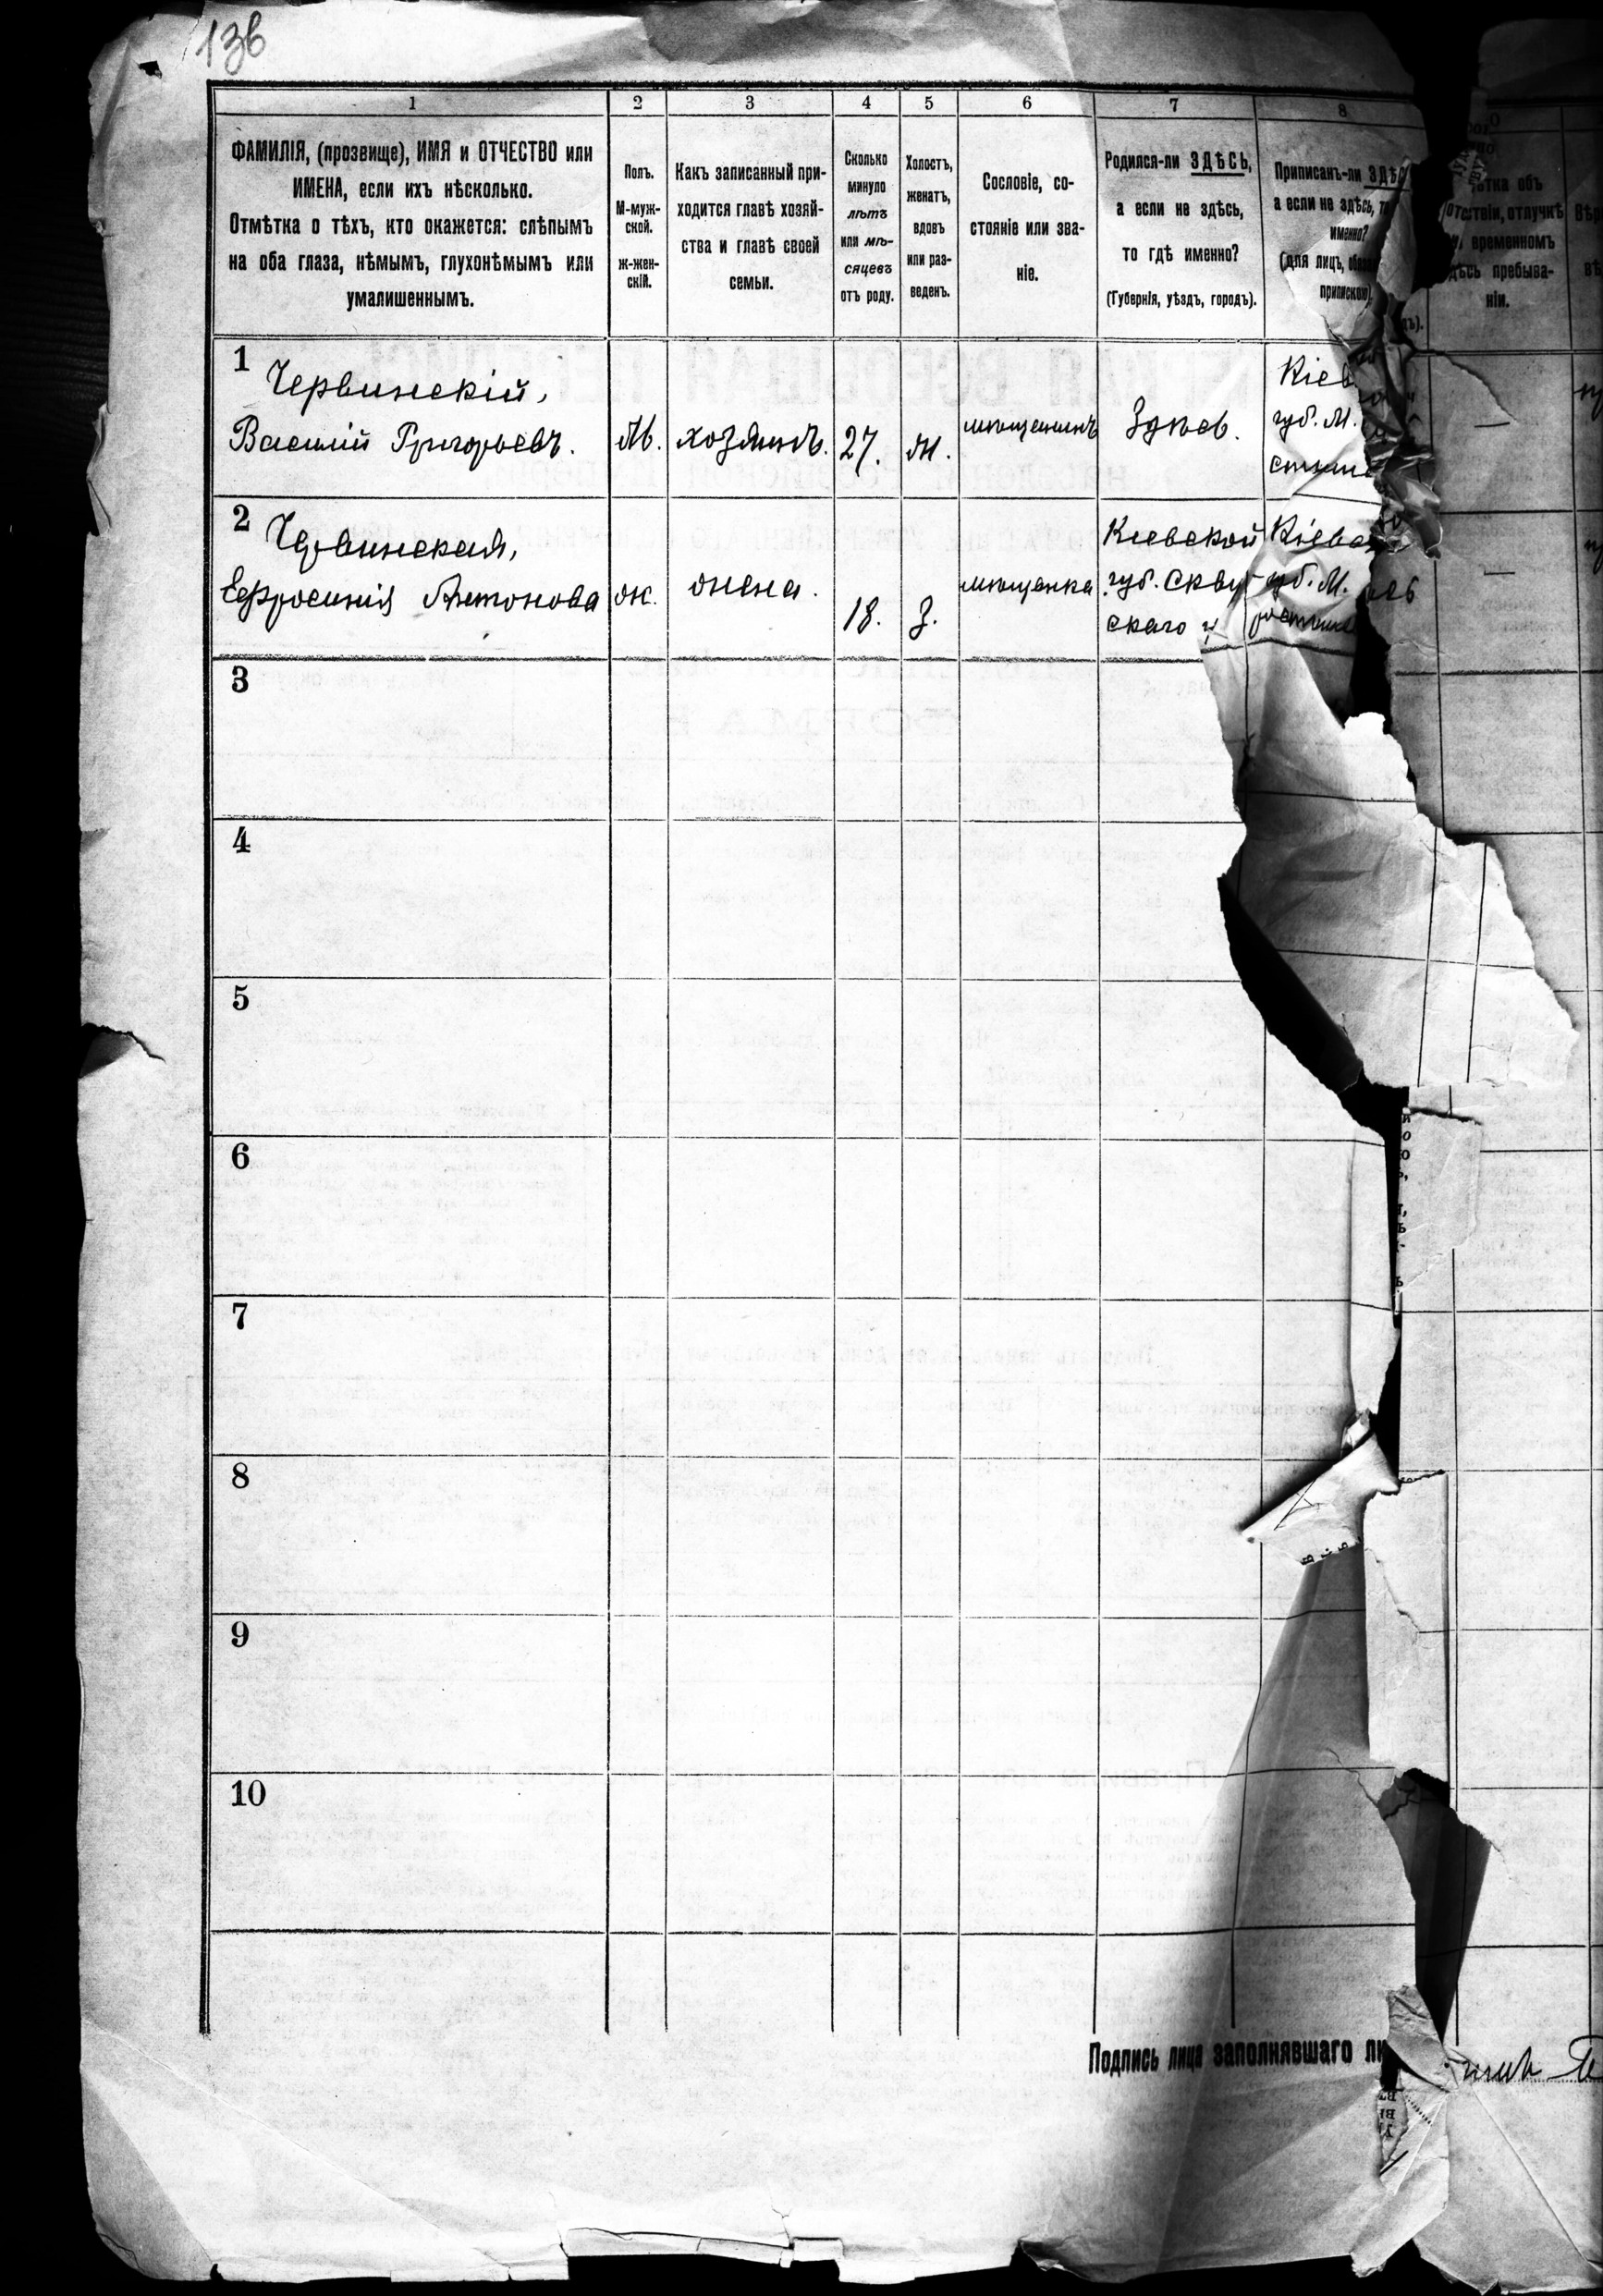 136
1 2 3 4 5 6 7 8
ФАМИЛІЯ, (прозвище), ИМЯ и ОТЧЕСТВО или
ИМЕНА, если ихъ нѣсколько.
Отмѣтка о тѣхъ, кто окажется: слѣпымъ
на оба глаза, нѣмымъ, глухонѣмымъ или
умалишеннымъ.
Полъ.
М-муж-
ской.
ж-жен-
скій.
Какъ записанный при-
ходится главѣ хозяй-
ства и главѣ своей
семьи.
Сколько
минуло
лѣтъ
или мѣ-
сяцевъ
отъ роду.
Холостъ,
женатъ,
вдовъ
или раз-
веденъ.
Сословіе, со-
стояніе или зва-
ніе.
Родился-ли ЗДѢСЬ,
а если не здѣсь,
то гдѣ именно?
(Губернія, уѣздъ, городъ).
Приписанъ-ли ЗДѢС
а если не здѣсь, то
именно?
(для лицъ,
припискою)
тка объ
отсутствіи, отлучкѣ
временномъ
здѣсь пребыва-
ніи.
1
Червинскій,
Василій Григорьевъ.
М.
хозяинъ.
27.
ж.
мѣщанинъ
Здѣсь.
Кіев
губ. М.
2
Червинская,
Ефросинія Антонова
ж.
жена.
18.
З.
мѣщанка
Кіевской
губ. Сквир
скаго у
Кіевс
губ. М.
3
4
5
6
7
8
9
10
Подпись лица заполнявшаго ли